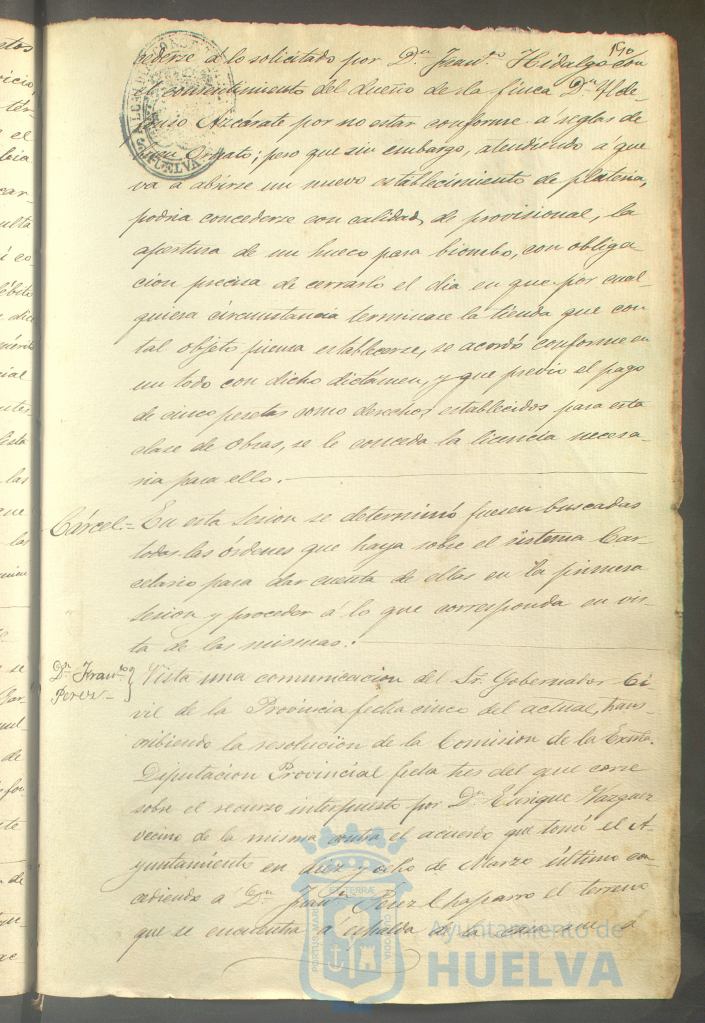 190
cederse á lo solicitado por Dn. Franco. Hidalgo con
el consentimiento del dueño de la finca Dn. Ylde-
Azcárate por no estar conforme a reglas de
Ornato; pero que sin embargo, atendiendo á que
va á abrirse un nuevo establecimiento de plateria,
podria concederse con calidad de provisional, la
apertura de un hueco para biombo, con obliga-
cion precisa de cerrarlo el dia en que por cual-
quiera circunstancia terminase la tienda que con
tal objeto piensa establecerse, se acordó conforme en
un todo con dicho dictámen, y que previo el pago
de cinco pesetas como derechos establecidos para esta
clase de obras, se le conceda la licencia necesa-
ria para ello.
Cárcel = En esta sesion se determinó fuesen buscadas
todas las órdenes que haya sobre el sistema Car-
celario para dar cuenta de ellas en la primera
sesion y proceder á lo que corresponda en vis-
ta de las mismas.
Dn. Franco. Perez
Vista una comunicacion del Sr. Gobernador Ci-
vil de la Provincia fecha cinco del actual, trans-
cribiendo la resolucion de la Comision de la Exma.
Diputacion Provincial fecha tres del que corre
sobre el recurso interpuesto por Dn. Enrique Vazquez
vecino de la misma contra el acuerdo que tomó el A-
yuntamiento en diez y ocho de Marzo último con
cediendo a Dn. Franco. Perez Chaparro el terreno
que se encuentra á espalda de la casa que
Ayuntamiento de
HUELVA